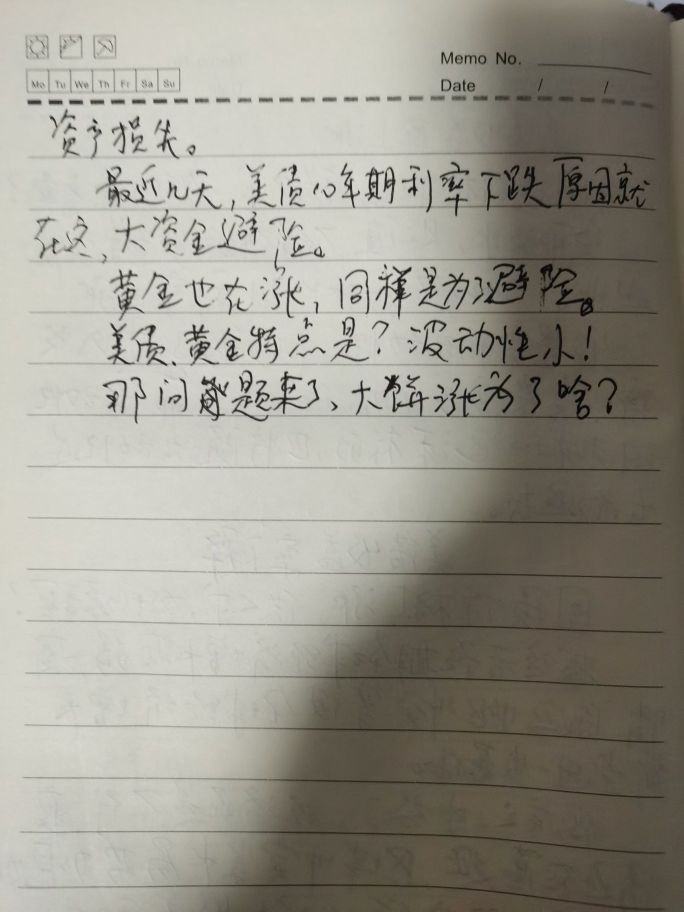 Memo No.
Mo Tu We Th Fr Sa Su
Date / /
资产损失。
最近几天,美债10年期利率下跌原因就
在这,大资金避险。
黄金也在涨,同样是为了避险。
美债、黄金特点是?波动性小!
那问题来了,大饼涨为了啥?